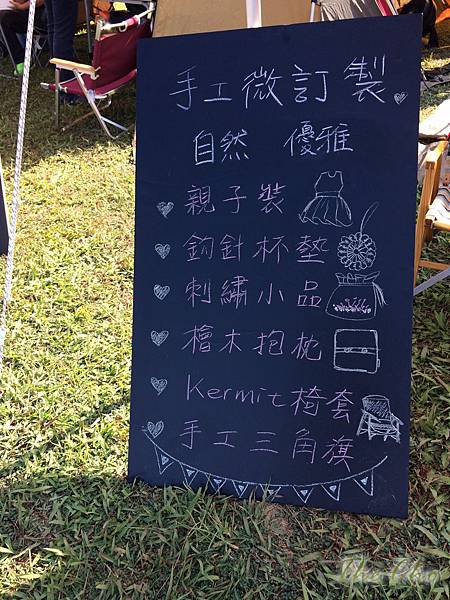 手工微訂製
自然 優雅
親子裝
鉤針杯墊
刺繡小品
檜木抱枕
Kermit椅套
手工三角旗